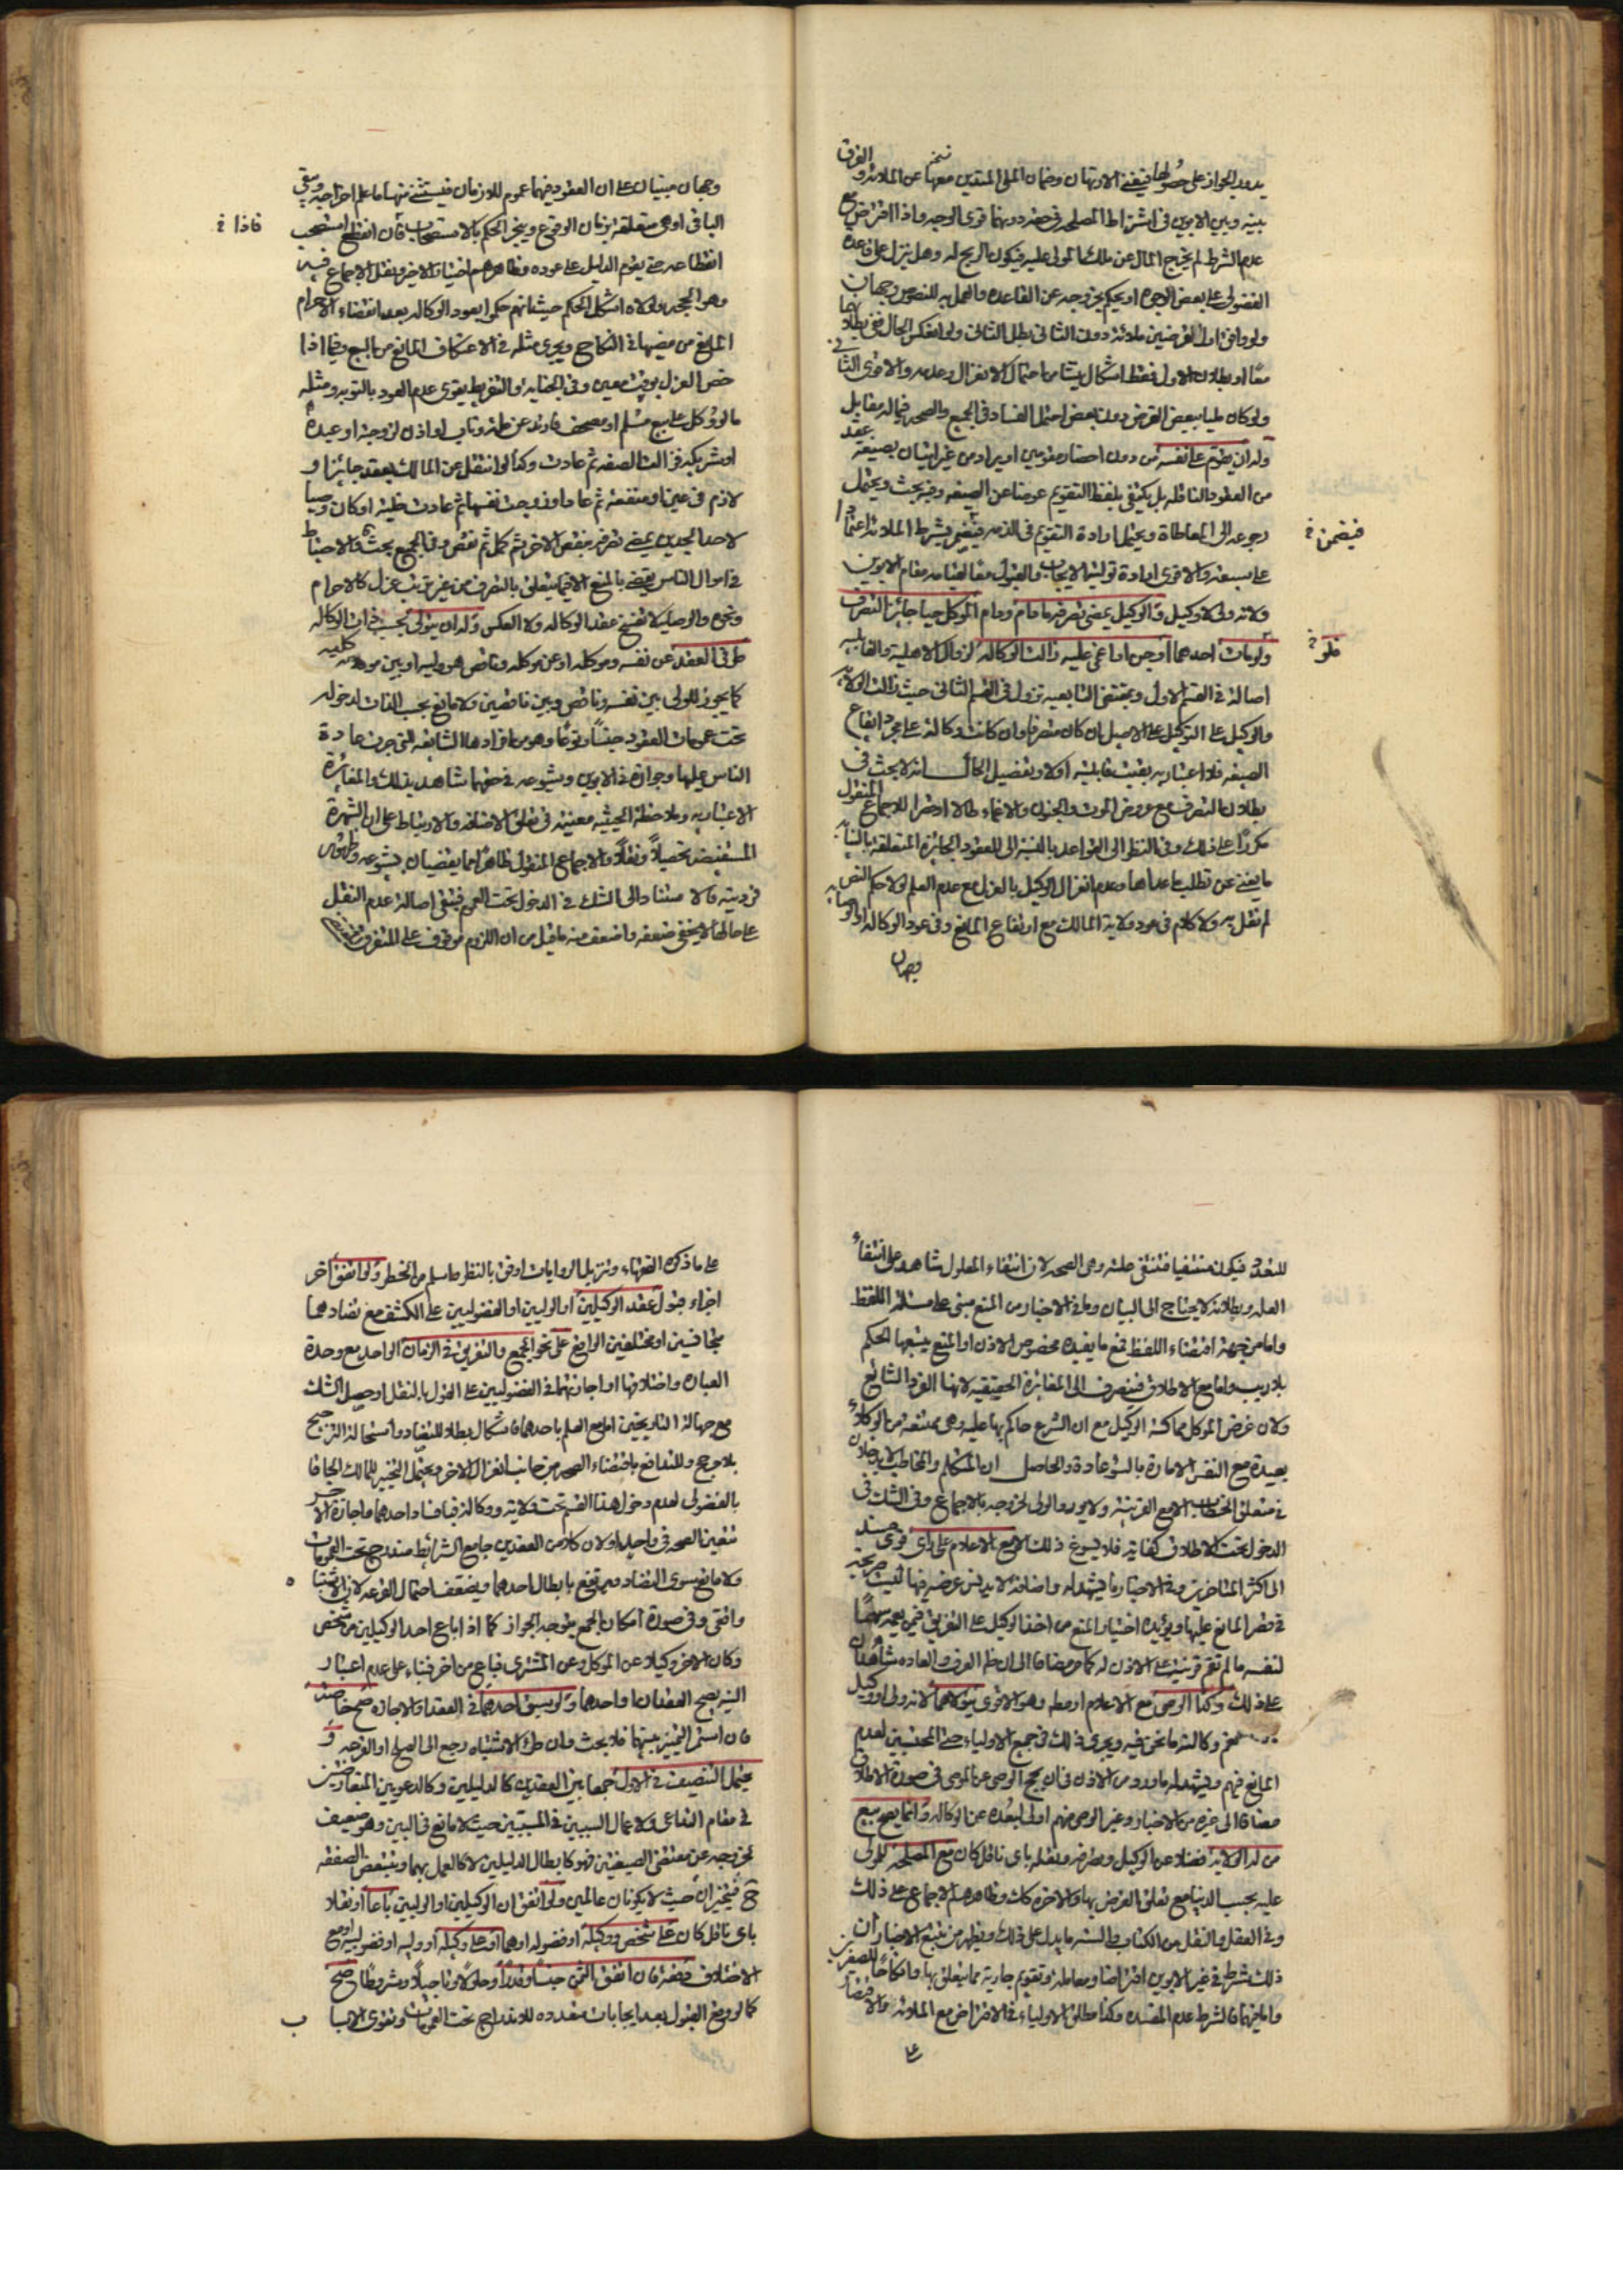 يدور الجواز على حصولها فيغني الارتهان وضمان الملي المتدين معهما عن الملائة والفرق
بينه وبين الابوين في اشتراط المصلحة في حقه دونهما قوي الوجه واذا اقترض مع
عدم الشرط لم يخرج المال عن ملك المولى عليه فيكون الربح له وهل ينزل على قاعدة
الفضولي على بعض الوجوه او يحكم بخروجه عن القاعدة والعمل به للنصوص وجهان
ولو وافق اول القرضين ملائة دون الثاني بطل الثاني ولو انعكس الحال ففي بطلانهما
معا او بطلان الاول فقط اشكال ينشا من احتمال الانعزال وعدمه والاقوى الثاني
ولو كان مليا ببعض القرض دون بعض احتمل الفساد في الجميع والصحة فيما له مقابل
وله ان يقوم على نفسه من دون احضار مقومين او يراد من غير اتيان بصيغة عقد
من العقود الناقلة بل يكتفي بلفظ التقويم عوضا عن الصيغة وفيه بحث ويحتمل
رجوعه الى المعاطاة ويحتمل ارادة التقويم في الذمة فيضمن بشرط الملائة اعتمادا
على سبقه والاقوى ارادة تولية الايجاب والقبول
ولانه ولي لا وكيل والوكيل يمضي تصرفه ما دام ودام الموكل حيا جائز التصرف
ولو مات احدهما او جن او اغمي عليه زالت الوكالة لزوال الاهلية والقابلية
اصالة في القسم الاول وبمقتضى التابعية تزول في القسم الثاني حيث زالت الولاية
والوكيل على التوكيل على الاصيل ان كان متصرفا وان كانت وكالته على مجرد ايقاع
الصيغة فلا اعتبار به بقيت قابليته او لا وتفصيل الحال انه لا بحث في
بطلان التصرف مع عروض الموت والجنون والاغماء طالا او قصرا للاجماع المنقول
مكررا على ذلك وفي النظر الى القواعد بالنسبة الى العقود الجائزة المتعلقة بالنيابة
ما يغني عن تطلب ما عداها وعدم انعزال الوكيل بالعزل مع عدم العلم لولا حكم النص به
لم نقل به ولا كلام في عود ولاية المالك مع ارتفاع المانع وفي عود الوكالة او الوصاية
وجهان
فيضمن خ
فلو خ
وجهان مبنيان على ان العقود فيها عموم للازمان فيستثنى منها ما علم اخراجه ويبقى
الباقي او هي متعلقة بزمان الوقوع وينجر الحكم بالاستصحاب فان انقطع استصحب
انقطاعه حتى يقوم الدليل على عوده وظاهرهم اختيار الاخير ونقل الاجماع فيه
وهو الحجة ولولاه اشكل الحكم حيث انهم حكموا بعود الوكالة بعد انقضاء الاحرام
المانع من مضيها في النكاح ويجري مثله في الاعتكاف المانع من البيع وفيما اذا
خص العزل بوقت معين وفي الجناية والتفريط يقوى عدم العود بالتوبة ومثله
ما لو وكل على بيع مسلم او مصحف فارتد عن ملته وتاب او اذن لزوجته او عبده
او شريكه فزالت الصفة ثم عادت وكذا لو انتقل عن المالك بعقد جائز او
لازم في عين او منفعة ثم عاد او زوجت نفسها ثم عادت خلية او كان وصيا
لاحد الجدين يمضي تصرفه بنقص الاخر ثم كمل ثم نقص وفي الجميع بحث والاحتياط
في اموال الناس يقضي بالمنع الا فيما يتعلق بالتصرف من غير ترتب عزل كالاحرام
ونحوه والوصاية لا تفسخ عقد الوكالة ولا العكس وله ان يتولى بحسب الوكالة
طرفي العقد عن نفسه وموكله او عن موكله وناقص هو وليه او بين موكليه
كما يجوز للولي بين نفسه وناقص وبين ناقصين ولا مانع بحسب الذات لدخوله
تحت عمومات العقود جنسا ونوعا وهو من افرادها الشايعة التي جرت عادة
الناس عليها وجوازه في الابوين وشيوعه في حقهما شاهد بذلك والمغايرة
الاعتبارية وملاحظة الحيثية مغنية في تعلق الاضافة والارتباط على ان الشهرة
المستفيضة تحصيلا ونقلا والاجماع المنقول ظاهرا يقضيان بشيوعه وظهور
فرديته فالاستناد الى الشك في الدخول تحت العموم فيبقى اصالة عدم النقل
على حالها لا يخفى ضعفه واضعف منه ما قيل من ان اللزوم موقوف على التفرق
فاذا خ
للتعذر فيكون منتفيا فتنتفي علته وهي الصحة لان انتفاء المعلول شاهد على انتفاء
العلة وبطلانه لا يحتاج الى البيان وما في الاخبار من المنع مبني على مسئلة اللفظ
واما من جهة اقتضاء اللفظ فمع ما يفيد خصوص الاذن او المنع يتبعها الحكم
بلا ريب واما مع الاطلاق فينصرف الى المغايرة الحقيقية لانها الفرد الشائع
ولان غرض الموكل مماكسة الوكيل مع ان الشرع حاكم بها عليه وهي ممتنعة من الوكلاء
بعيدة مع النفس الامارة بالسوء عادة والحاصل ان المتكلم والمخاطب لا يدخلان
في متعلق الخطاب الا مع القرينة ولا يورد الولي لخروجه بالاجماع وفي الشك في
الدخول تحت الاطلاق كفاية فلا يسوغ ذلك الا مع الاعلام على راي قوي
الى اكثر المتاخرين وفي الاخبار ما يشهد له
في حصر المانع عليها ويؤيده اختيار المنع من اخذ الوكيل على التفريق فيمن يعمه سهما
لنفسه ما لم تقم قرينة على الاذن له كما مر مضافا الى ان ظاهر العرف والعادة شاهدان
على ذلك وكذا الوصي مع الاعلام او مطلقا وهو الاقوى يتولاهما لانه ولي او وكيل
وكالته ما نحن فيه ويجري ذلك في جميع الاولياء حتى المحتسبين لعدم
المانع فيهم ويشهد له ما ورد من الاذن في ان يحج الوصي عن الموصي في صورة الاطلاق
مضافا الى غيره من الاخبار وغير الوصي منهم اولى لبعده عن الوكالة وانما يصح بيع
من له الولاية فضلا عن الوكيل وصرفه ونقله باي ناقل كان مع المصلحة للمولى
عليه بحسب الدنيا مع تعلق الغرض بها والاخرة كذلك وظاهرهم الاجماع على ذلك
وفي العقل والنقل من الكتاب والسنة ما يدل على ذلك ويظهر من تتبع الاخبار ان
ذلك شرط في غير الابوين اقتراضا ومعاملة وتقويم جارية مما يتعلق بها وانكاحا للصغيرين
واما فيهما فالشرط عدم المفسدة وكذا مطلق الاولياء في الاقتراض مع الملائة والاقتصار
على
على ما ذكره الفقهاء وتنزيل الروايات اوفق بالنظر واسلم من الخطر ولو اتفق اخر
اجزاء قبول عقد الوكيلين او الوليين او الفضوليين على الكشف مع تضادهما
متجانسين او مختلفين الواقع على نحو الجمع والتفريق في الزمان الواحد مع وحدة
العبارة واختلافها او اجازتهما في الفضوليين على القول بالنقل او حصل الشك
مع جهالة التاريخين او مع العلم باحدهما فاشكال بطلا للتضاد واستحالة الترجيح
بلا مرجح وللتدافع باقتضاء الصحة من جانب انعزال الاخر ويحتمل التخيير للمالك الحاقا
بالفضولي لعدم دخول هذا القسم تحت ولايته ووكالته فباقساد احدهما واجازة الاخر
تتعين الصحة في واحد ولان كلا من العقدين جامع الشرائط مندرج تحت العمومات
ولا مانع سوى التضاد ويرتفع بابطال احدهما ويضعف احتمال القرعة لان الاشتباه
واقعي وفي صورة امكان الجمع يتوجه الجواز كما اذا باع احد الوكيلين من شخص
وكان الاخر وكيلا عن الموكل وعن المشتري فباع من اخر فبناء على عدم اعتبار
النية يصح العقدان او احدهما ولو سبق احدهما في العقد او الاجازة صح خاصة
فان استمر التمييز بينهما فلا بحث وان طرء الاشتباه رجع الى الصلح او القرعة و
يحتمل التنصيف في الاول جمعا بين العقدين كالدليلين وكالدعويين المتعارضتين
في مقام التداعي ولاعمال السببين في المسببين حيث لا مانع في البين وهو ضعيف
لخروجه عن مقتضى الصيغتين فهو كابطال الدليلين لا كالعمل بهما ويتبعض الصفقة
فيتخيران حيث لا يكونان عالمين ولو اتفق ان الوكيلين او الوليين باعا او نقلا
باي ناقل كان على شخص ووكيله او فضوله او هما او على وكيله او وليه او فضوليه او مع
الاختلاف دفعة فان اتفق الثمن جنسا وقدرا وحلولا وتاجيلا وشروطا صح
كما لو وقع القبول بعد ايجابات متعددة للاندراج تحت العمومات وتقوى الاسباب